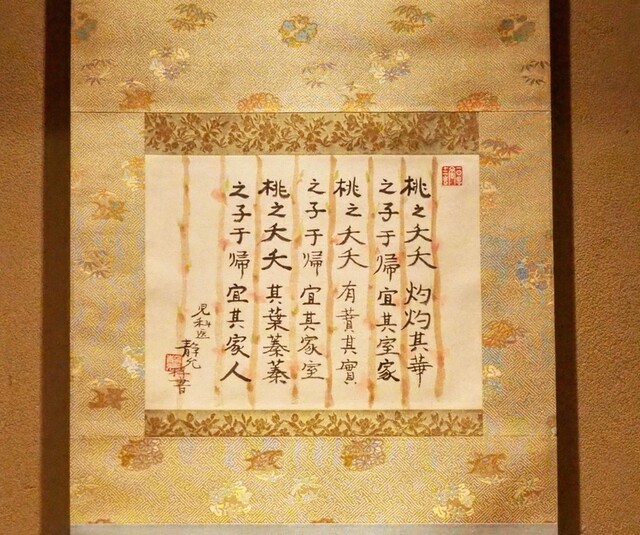 桃之夭夭灼灼其華
之子于帰宜其室家
桃之夭夭有蕡其實
之子于帰宜其家室
桃之夭夭其葉蓁蓁
之子于帰宜其家人
静允
書